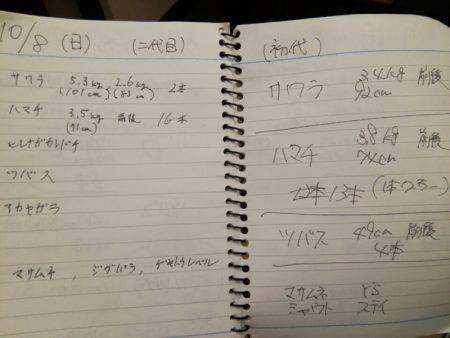 10/8 (日) (二代目)
サワラ 5.3kg (101cm) 2.6kg (83cm) 2本
ハマチ 3.5kg (71cm) 前後 16本
ヒレナガカンパチ
ツバス
アカヤガラ
マサムネ, ジグパラ,
(初代)
サワラ 3.4kg 前後
92cm
ハマチ 3.8kg 前後
74cm
13本
ツバス 49cm 前後
4本
マサムネ Y's
ミャウト スティ